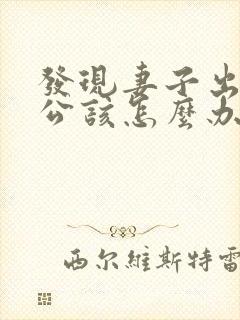 發現妻子出
公該怎麼办
西尔維斯特雷